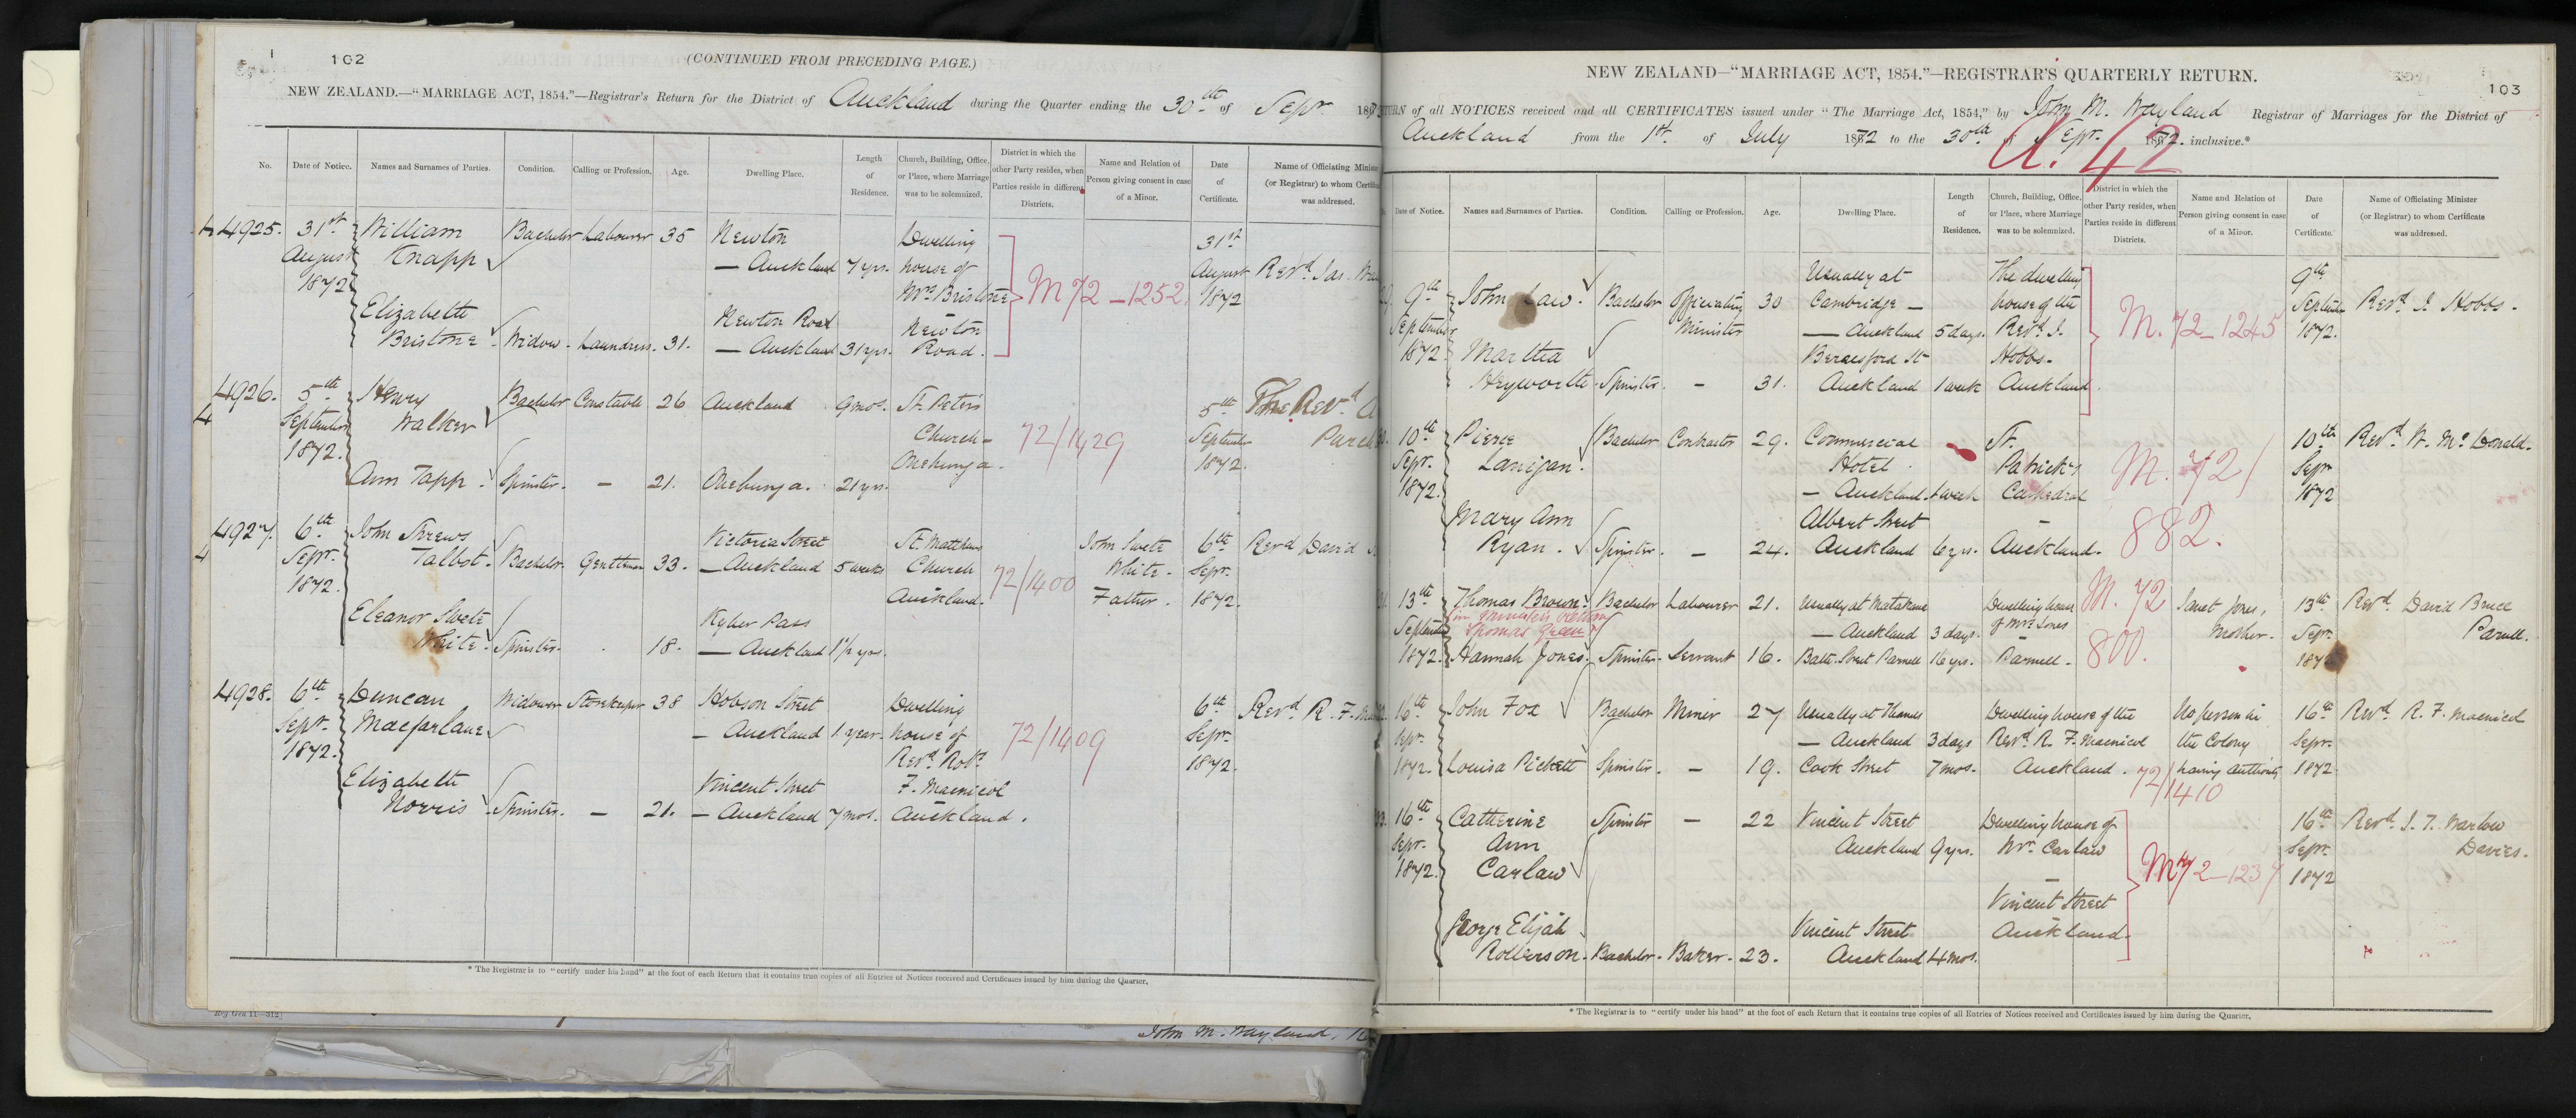 102
(CONTINUED FROM PRECEDING PAGE.)
NEW ZEALAND.—"MARRIAGE ACT, 1854."—Registrar's Return for the District of Auckland during the Quarter ending the 30th of Sepr. 187
No. Date of Notice. Names and Surnames of Parties. Condition. Calling or Profession. Age. Dwelling Place. Length of Residence. Church, Building, Office, or Place, where Marriage was to be solemnized. District in which the other Party resides, when Parties reside in different Districts. Name and Relation of Person giving consent in case of a Minor. Date of Certificate. Name of Officiating Minister (or Registrar) to whom Certificate was addressed.
4 4925. 31st William Bachelor Labourer 35 Newton Dwelling 31st
August Knapp — Auckland 7 yrs. house of August Revd. Jas.
1872 Mrs. Bristone M 72 — 1252 1872
Elizabeth Newton Road Newton
Bristone Widow. Laundress. 31. — Auckland 31 yrs. Road.
4926. 5th Henry Bachelor Constable 26 Auckland 9 mos. St. Peter's 5th The Revd. A
4 September Walker Church — 72/1429 September Purch
1872. Onehunga. 1872.
Ann Tapp. Spinster. — 21. Onehunga. 21 yrs.
4927. 6th John Threws Victoria Street St. Matthews John Swete 6th Revd David
4 Sepr. Talbot. Bachelor. Gentleman 33. — Auckland 5 weeks Church 72/1400 White. Sepr.
1872. Auckland. Father. 1872.
Eleanor Swete Kyber Pass
White. Spinster. 18. — Auckland 1½ yrs.
4928. 6th Duncan Widower Storekeeper 38 Hobson Street Dwelling 6th Revd. R. F.
Sepr. Macfarlane — Auckland 1 year. house of 72/1409 Sepr.
1872. Revd. Robt. 1872.
Elizabeth Vincent Street F. Macnicol
Norris Spinster. — 21. — Auckland 7 mos. Auckland.
* The Registrar is to "certify under his hand" at the foot of each Return that it contains true copies of all Entries of Notices received and Certificates issued by him during the Quarter.
Reg Gen 11—312]
John M. Wayland,
103
NEW ZEALAND—"MARRIAGE ACT, 1854."—REGISTRAR'S QUARTERLY RETURN.
TURN of all NOTICES received and all CERTIFICATES issued under "The Marriage Act, 1854," by John M. Wayland Registrar of Marriages for the District of
Auckland from the 1st. of July 1872 to the 30th of Sepr. 1872. inclusive.*
42
Date of Notice. Names and Surnames of Parties. Condition. Calling or Profession. Age. Dwelling Place. Length of Residence. Church, Building, Office, or Place, where Marriage was to be solemnized. District in which the other Party resides, when Parties reside in different Districts. Name and Relation of Person giving consent in case of a Minor. Date of Certificate. Name of Officiating Minister (or Registrar) to whom Certificate was addressed.
Usually at The dwelling 9th
9th John Law. Bachelor Officiating 30 Cambridge — house of the September Revd. J. Hobbs.
September Minister — Auckland 5 days. Revd. J. M. 72 — 1245 1872.
1872. Martha Beresford St Hobbs.
Heyworth Spinster. — 31. Auckland 1 week Auckland.
10th Pierce Bachelor Contractor 29. Commercial St. 10th Revd. W. McDonald.
Sepr. Lanigan. Hotel. Patrick's M. 72/ Sepr
1872. — Auckland. 1 week Cathedral 1872
Mary Ann Albert Street — 882.
Ryan. Spinster. — 24. Auckland 6 yrs. Auckland.
13th Thomas Brown. Bachelor Labourer 21. Usually at Matakana Dwelling house M. 72 Janet Jones, 13th Revd. David Bruce
September (in Minister's Return Thomas Green) — Auckland 3 days. of Mrs Jones 800. Mother. Sepr. Parnell.
1872. Hannah Jones. Spinster. Servant 16. Balt. Street Parnell 16 yrs. Parnell. 187
16th John Fox Bachelor Miner 27 Usually at Thames Dwelling house of the No person in 16th Revd. R. F. Macnicol
Sepr. — Auckland 3 days Revd. R. F. Macnicol the Colony Sepr.
1872. Louisa Pickett Spinster. — 19. Cook Street 7 mos. Auckland. 72/1410 having authority 1872
16th Catherine Spinster — 22 Vincent Street Dwelling house of 16th Revd. J. T. Warlow
Sepr. Ann Auckland 9 yrs. Mr. Carlaw Sepr. Davies.
1872. Carlaw — M 72 — 1237 1872
Vincent Street
George Elijah Vincent Street Auckland.
Rollerson. Bachelor. Baker. 23. Auckland 4 mos.
* The Registrar is to "certify under his hand" at the foot of each Return that it contains true copies of all Entries of Notices received and Certificates issued by him during the Quarter.